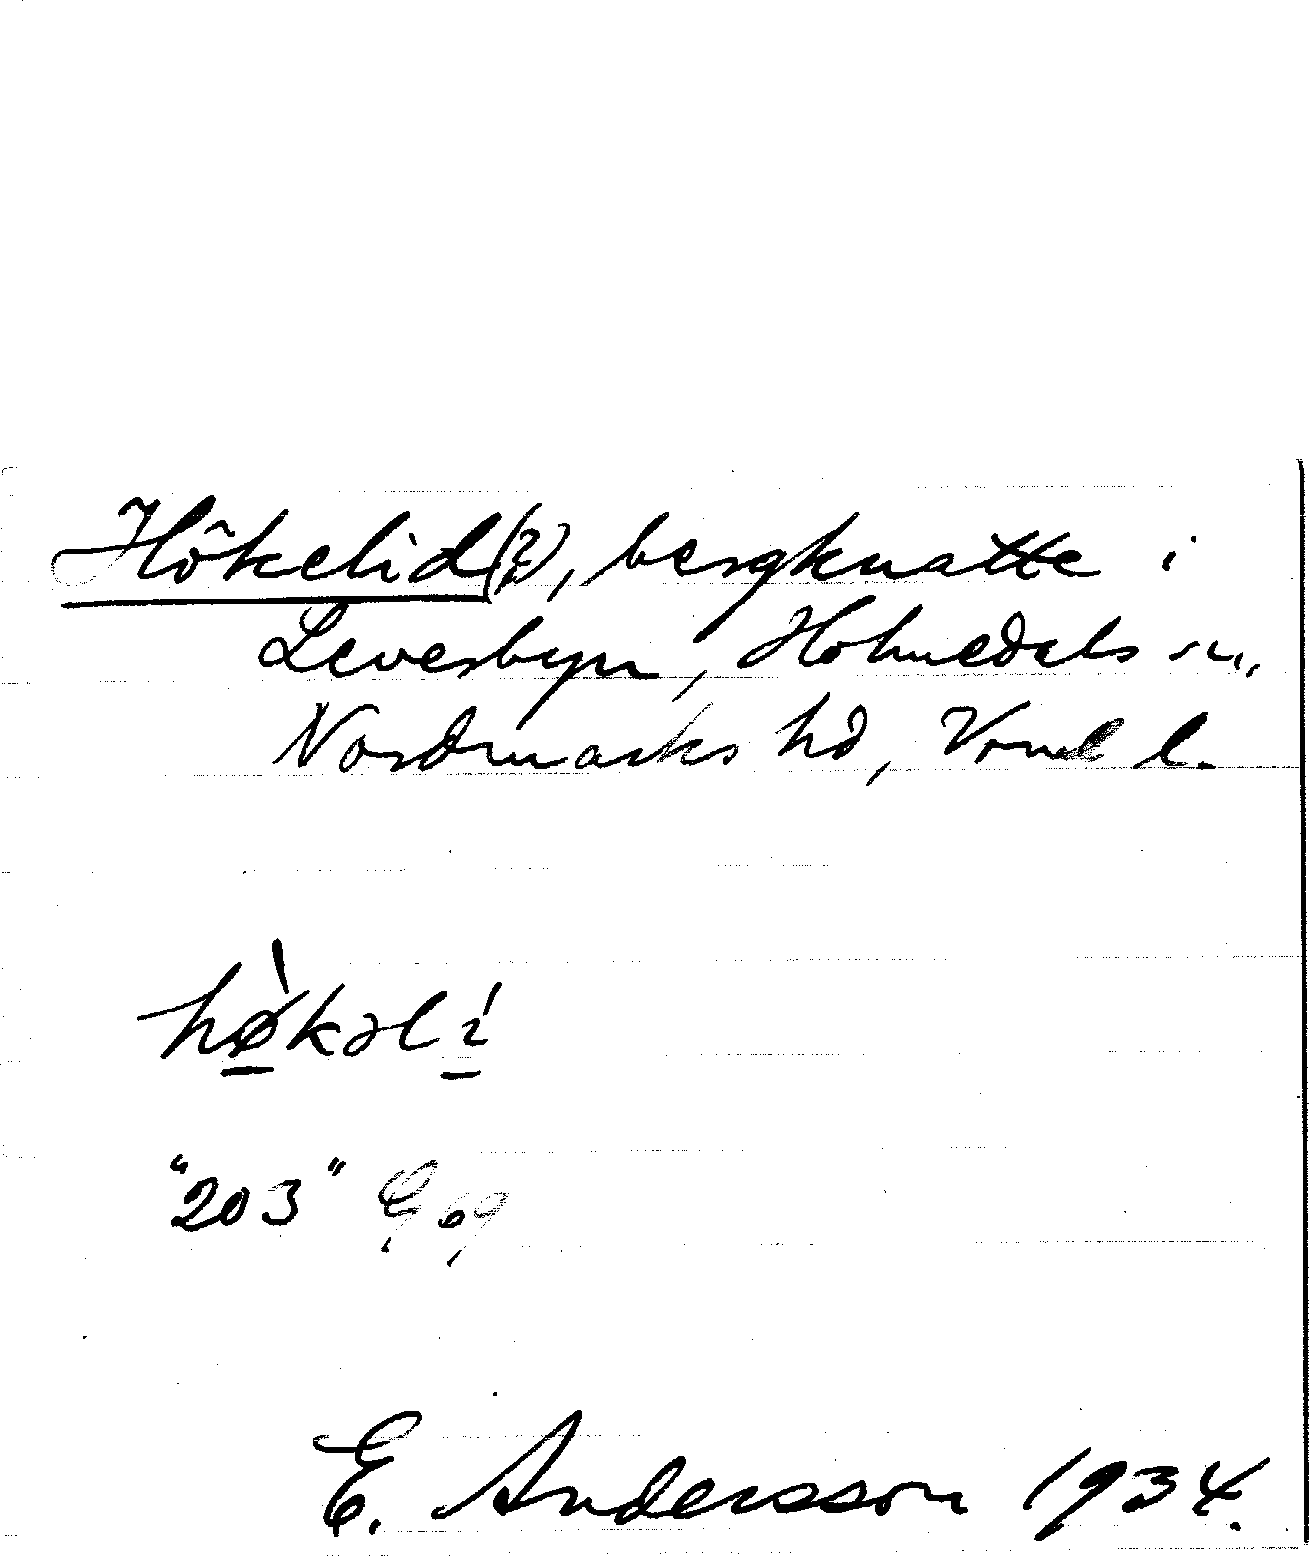 Hökelid(?), bergknatte i
Levesbyn, Holmedals sn,
Nordmarks hd, Vrml l.
hø̀kəlí
"203" 69
E. Andersson 1934.